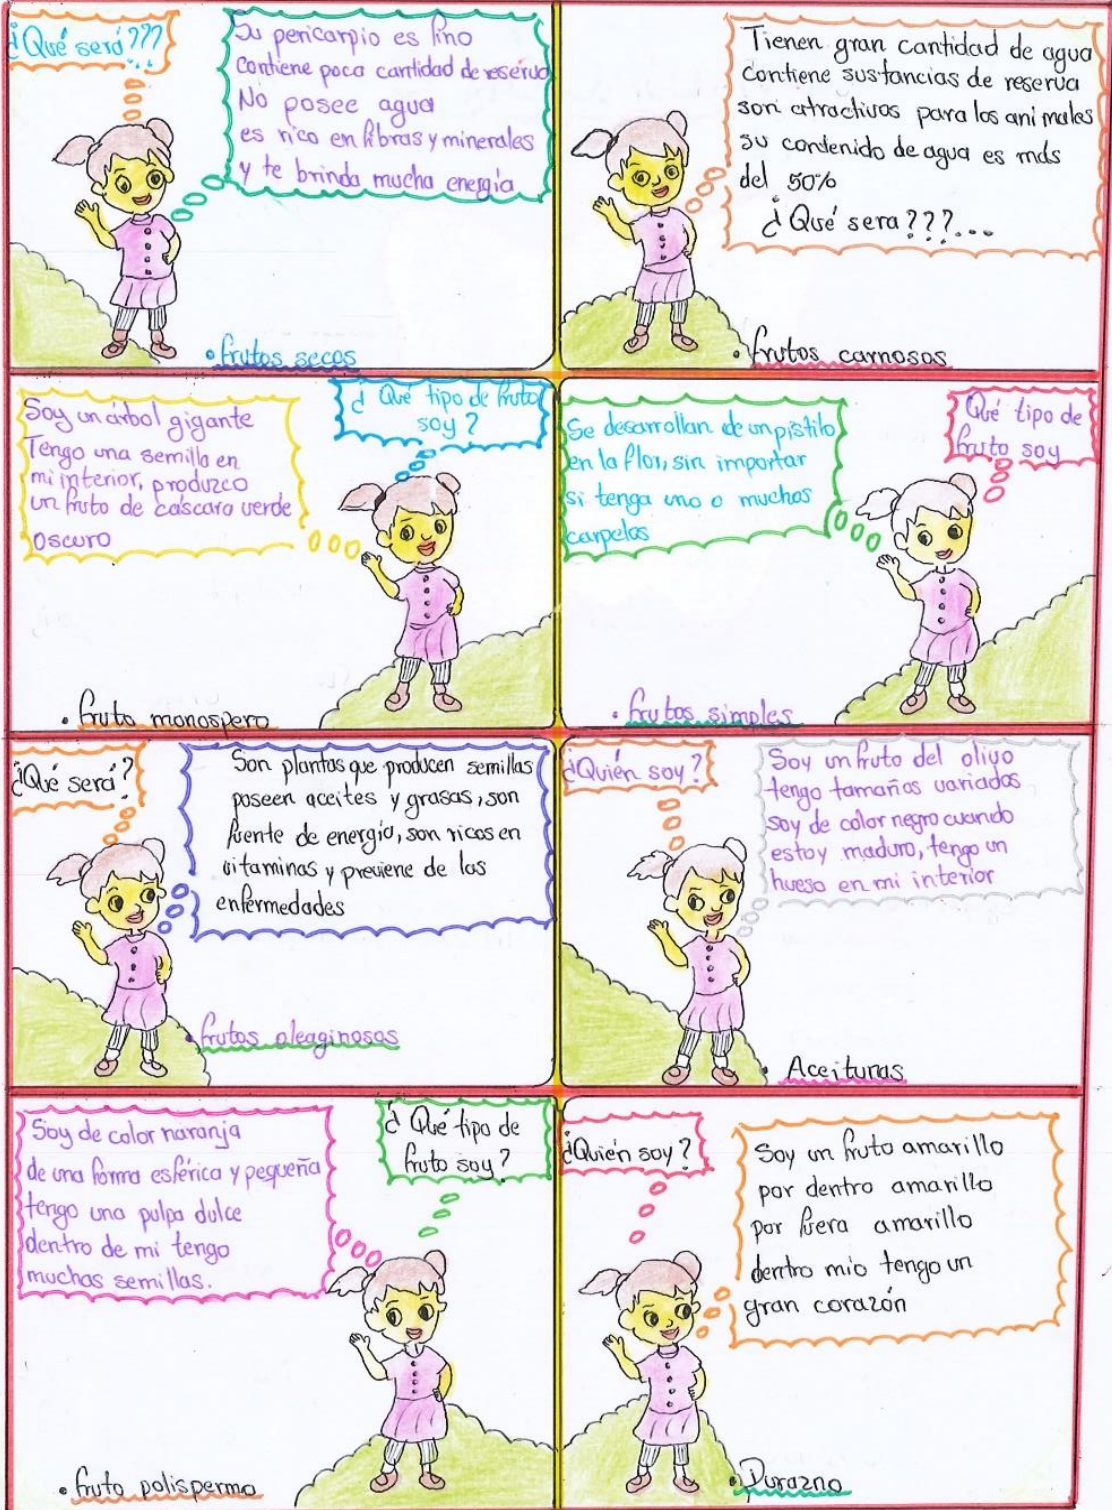 ¿Qué será???
Su pericarpio es fino
Contiene poca cantidad de reserva
No posee agua
es rico en fibras y minerales
y te brinda mucha energía
• frutos secos
Tienen gran cantidad de agua
Contiene sustancias de reserva
son atractivos para los animales
su contenido de agua es más
del 50%
¿Qué sera???...
• frutos carnosos
Soy un árbol gigante
Tengo una semilla en
mi interior, produzco
un fruto de cáscara verde
oscuro
¿Qué tipo de fruto
soy?
• fruto monospero
Se desarrollan de un pistilo
en la flor, sin importar
si tenga uno o muchos
carpelos
Qué tipo de
fruto soy
• frutos simples
¿Qué será?
Son plantas que producen semillas
poseen aceites y grasas, son
fuente de energía, son ricos en
vitaminas y previene de las
enfermedades
• frutos oleaginosos
¿Quién soy?
Soy un fruto del olivo
tengo tamaños variados
soy de color negro cuando
estoy maduro, tengo un
hueso en mi interior
• Aceitunas
Soy de color naranja
de una forma esférica y pequeña
tengo una pulpa dulce
dentro de mi tengo
muchas semillas.
¿Qué tipo de
fruto soy?
• fruto polispermo
¿Quién soy?
Soy un fruto amarillo
por dentro amarillo
por fuera amarillo
dentro mio tengo un
gran corazón
• Durazno